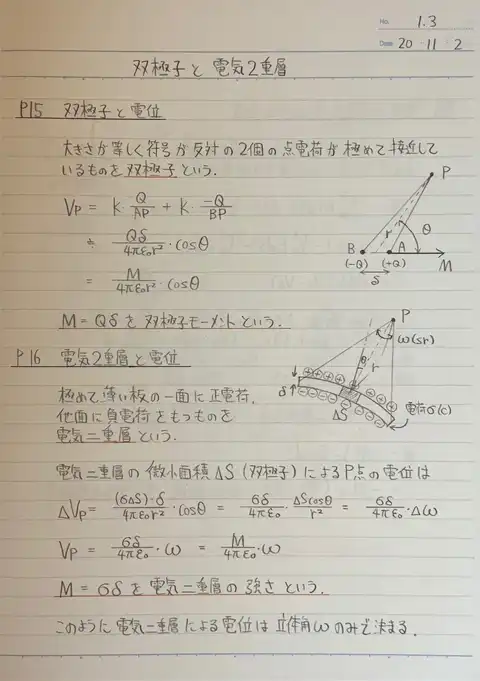 No. 1.3
Date 20 · 11 · 2
双極子と電気2重層
P15 双極子と電位
大きさが等しく符号が反対の2個の点電荷が極めて接近して
いるものを双極子という.
Vp = k・Q/AP + k・-Q/BP
≒ Qδ/4πε₀r²・cosθ
= M/4πε₀r²・cosθ
P
r
θ
B A
(-Q) (+Q) M
δ
M = Qδ を双極子モーメントという.
P16 電気2重層と電位
極めて薄い板の一面に正電荷,
他面に負電荷をもつものを
電気二重層という.
P
ω(sr)
θ r
δ
ΔS
電荷σ(c)
電気二重層の微小面積ΔS(双極子)によるP点の電位は
ΔVp = (σΔS)・δ/4πε₀r²・cosθ = σδ/4πε₀・ΔScosθ/r² = σδ/4πε₀・Δω
Vp = σδ/4πε₀・ω = M/4πε₀・ω
M = σδ を電気二重層の強さという.
このように電気二重層による電位は立体角ωのみで決まる.